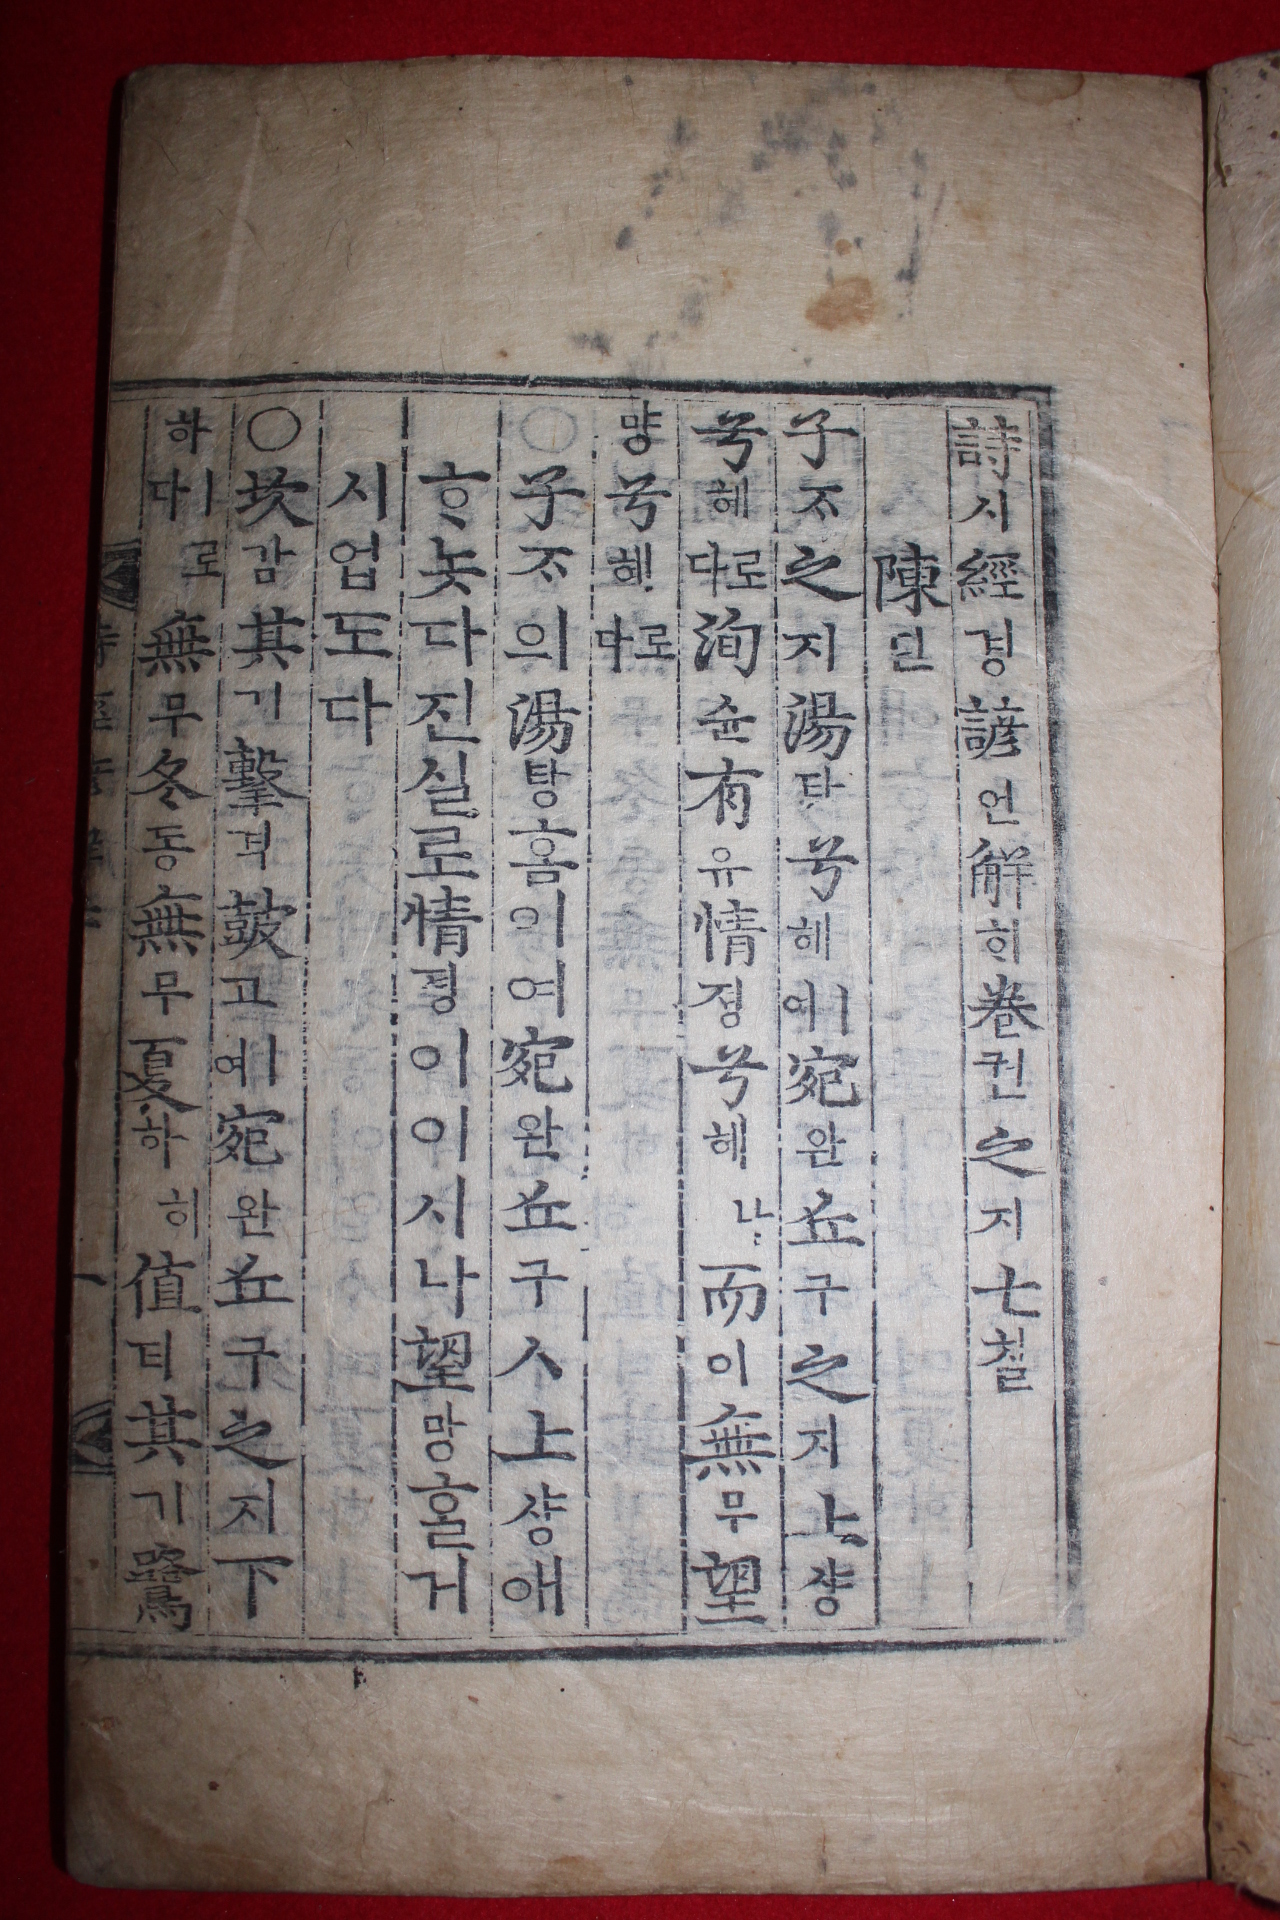 詩시經경諺언解ᄒᆡ卷권之지七칠
陳딘
子ᄌᆞ之지湯탕兮혜ㅣ여宛완丘구之지上샹
兮혜로다洵슌有유情졍兮혜나而이無무望
망兮혜로다
○子ᄌᆞ의湯탕홈이여宛완丘구ㅅ上샹애
ᄒᆞ놋다진실로情졍이이시나望망홀거
시업도다
○坎감其기擊격鼓고ㅣ여宛완丘구之지下
하ㅣ로다無무冬동無무夏하히值티其기鷺